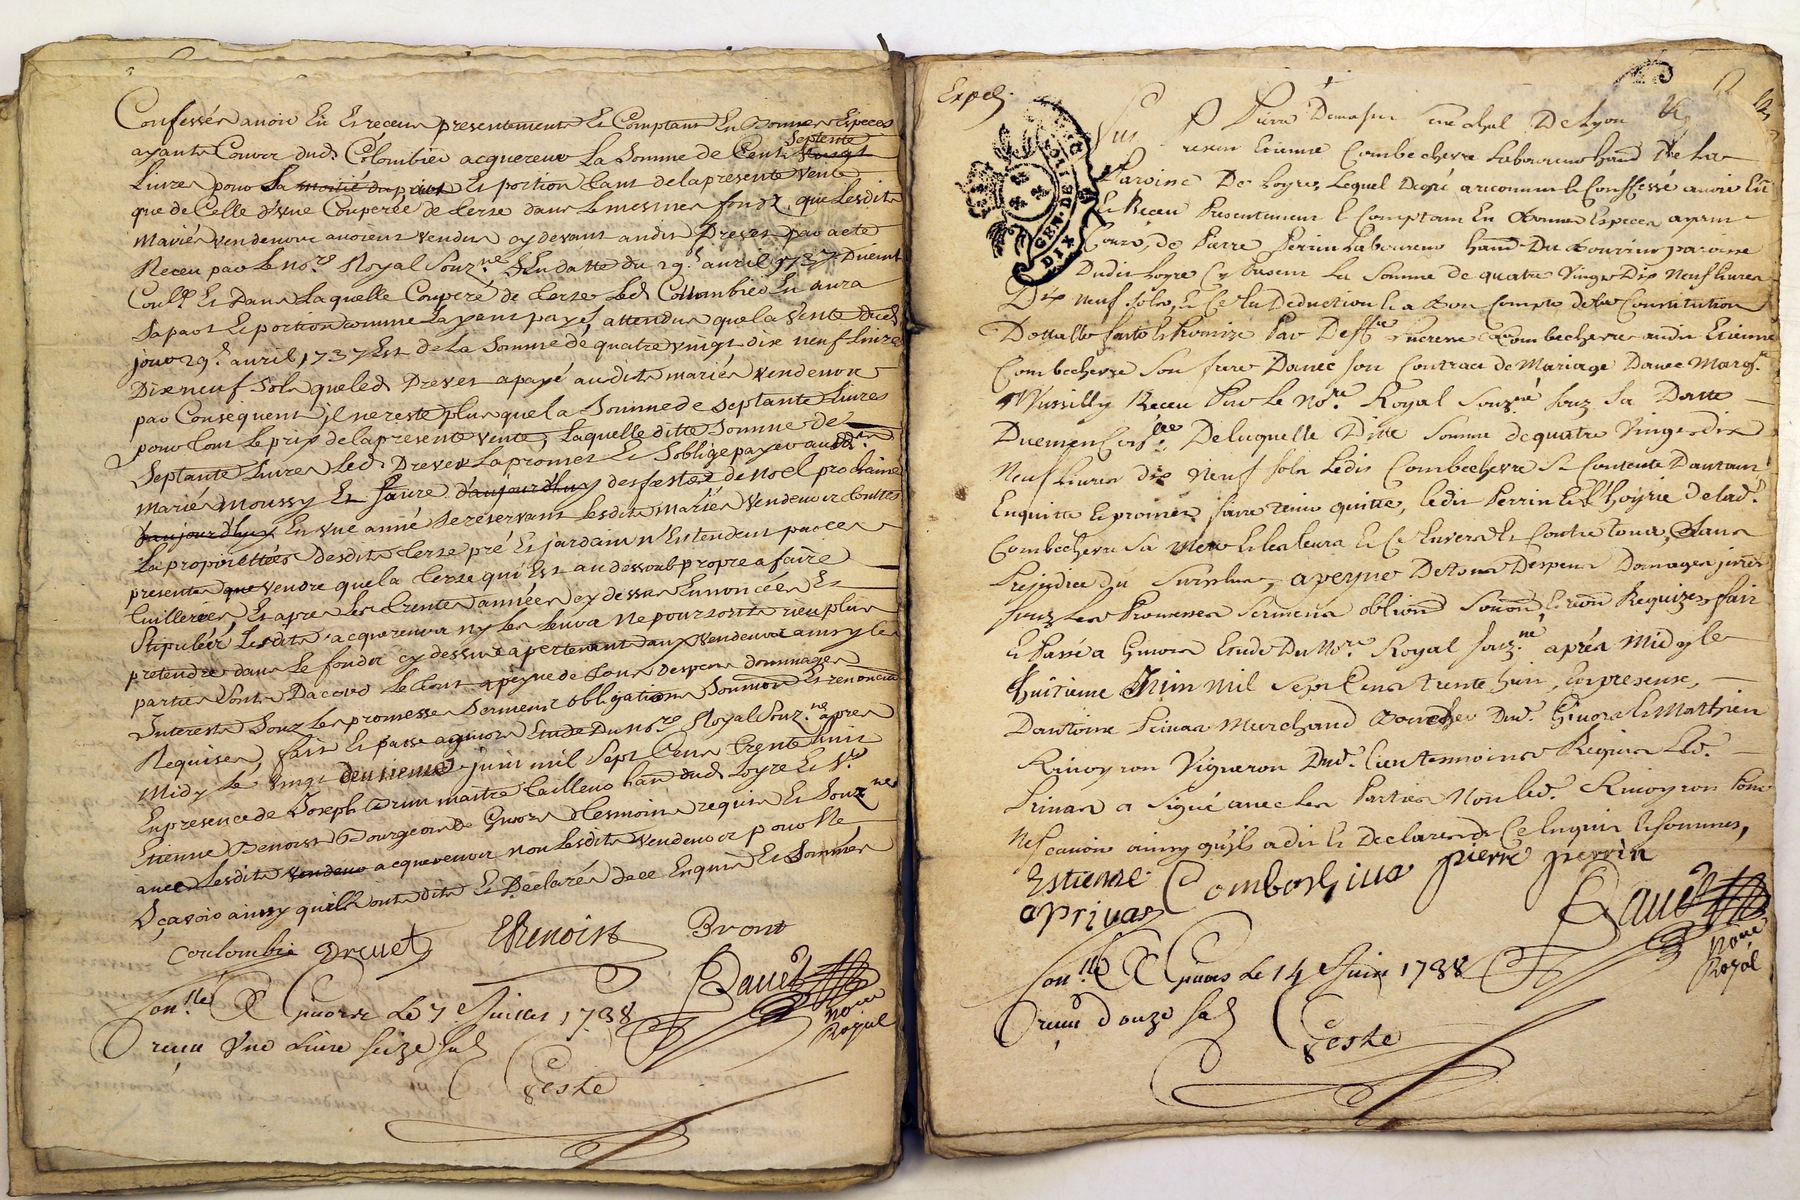 Confessés avoir Eu Et receu presentement Et Comptant En Bonnes Especes
ayants Couvr dud. Colombier acquereur La Somme de Cent Septente
Livres pour La moitié du prix Et portion tant de la presente Vente
que de Celle d'Une Couperée de terre dans Le mesme fondz, que Lesdits
Mariés Vendeurs avoient Vendus cy devant audit Drevet par acte
Receu par Le no.re Royal Souz.né En datte du 29.e avril 1737 Duëment
Con.llé Et Dans Laquelle Couperé de terre Led. Collombier En aura
Sa part Et portion comme L'ayant payé, attendu que La Vente dud.
jour 29.e avril 1737 Est de La Somme de quatre Vingt dix neuf Livres
Dix neuf Sols que led. Drevet a payé audits mariés Vendeurs
par Consequent, jl ne reste plus que La Somme de Septante Livres
pour tout Le prix de la presente Vente, Laquelle ditte Somme de
Septante Livres Led. Drevet La promet Et S'oblige payer ausd.
Mariés Moussy Et Faure d'aujourd'huy des festes de Noel prochaine
d'aujourd'huy En une année Se reservant Lesdits Mariés Vendeurs toutes
La proprietées Desdits terre pré Et jardain N'Entendent par ces
presente que Vendre que La terre qui Est au dessoub propre a faire
tuilleries, Et apres Les trente années cy dessus Ennoncées Et
Stipulées Lesdits acquereurs ny Les Leurs Ne pourront rien plus
pretendre dans Le fondz cy dessus apertenent aux Vendeurs ainsy Les
parties Sont D'acord Le tout a peyne de tous despens dommages
Interests Souz Les promesses Serment obligations Soumon Et renonciaon
Requises, fait Et passé a Givors Etude Du No.re Royal Souz.né apres
Midy Le Vingt deuxieme juin mil Sept Cens trente huit
En presence de Joseph maitre tailleur han̄t dud. Loyre Et S.r
Etienne Benoist Bourgeois de Givors tesmoins requis Et Souz.nés
avec Lesdits vendeur acquereur non Lesdits Vendeurs pour Ne
Sçavoir ainsy quils ont dits Et Declarés de ce Enquis Et Sommés
Coulombié Drevet EBenoist Bront
Davet No.re Royal
Con.llé A Givors Le 7 Juillet 1738
receu Une Livre Seize Sols
Geste
Exped.
GEN. DE LION
DIX
Pierre Senechal De Lyon
Etienne Combechevre Laboureur hand De La
Paroisse De Loyre, Lequel Degré a reconnu Et Conffessé avoir Eu
Et Receu Presentement Et Comptant En Bonnes Especes ayant
Cours, de Pierre Perrin Laboureur hand Du paroisse
Dudit Loyre Cy La Somme de quatre Vingt Dix Neuf Livres
Dix Neuf Sols, Et Ce En Deduction Et a Bon Compte de La Constitution
Dottalle faite Et Promize Par Deff.te Combechevre audit Etienne
Combechevre Son frere Dans Son Contract de Mariage Davec Marg.te
Mussilly Receu Par Le No.re Royal Souz.né Souz Sa Datte
Duement Con.llée De laquelle Ditte Somme de quatre Vingt dix
Neuf Livres dix Neuf Sols Ledit Combechevre Se Contente D'autant
En quitte Et promet faire tenir quitte, ledit Perrin Et L'hoyrie de lad.
Combechevre Sa Et les Leurs Et Ce Envers Et Contre tous, Sans
Prejudice du Surplus, a peyne De tous Despens Domages jnterests
Souz Les Promesses Serments obli.ond Soumon̄ Et ren̄on Requizes, fait
Et Passé a Givors Etude Du No.re Royal Souz.né après Midy le
huitieme Juin Mil Sept Cens trente huit, En presence,
D'antoine Privas Marchand Boucher Dud. Givors Et Matthieu
Rivoyron Vigneron Dud. Lieu temoins Requis Led.
Privas a Signé avec Les Parties Non led. Rivoyron Pour
Ne Scavoir ainsy qu'ils a dit Et Declaré de Ce Enquis Et Sommés,
Estienne Combechiva pierre perrin
aprivas Davet No.re Royal
Con.llé A Givors Le 14 Juin 1738
receu douze Sols
Geste